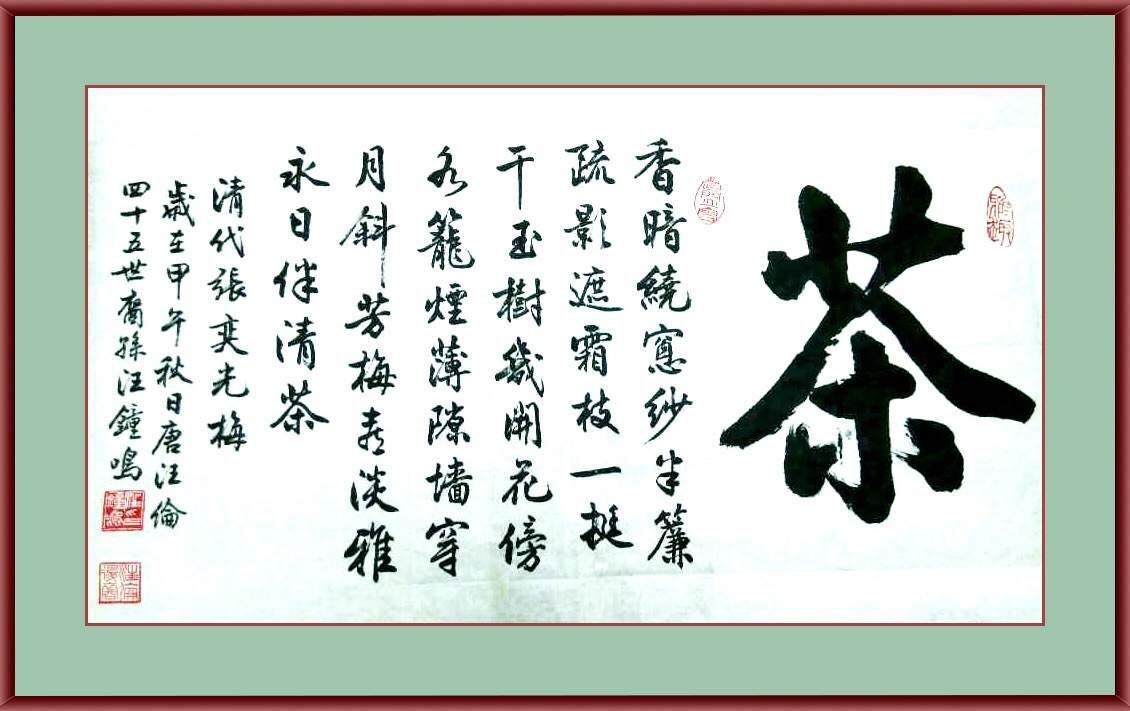 茶
香暗繞窓紗半簾
疏影遮霜枝一挺
干玉樹幾開花傍
水籠煙薄隙墻穿
月斜芳梅喜淡雅
永日伴清茶
清代張奕光梅
歲在甲午秋日唐汪倫
四十五世裔孫汪鐘鳴